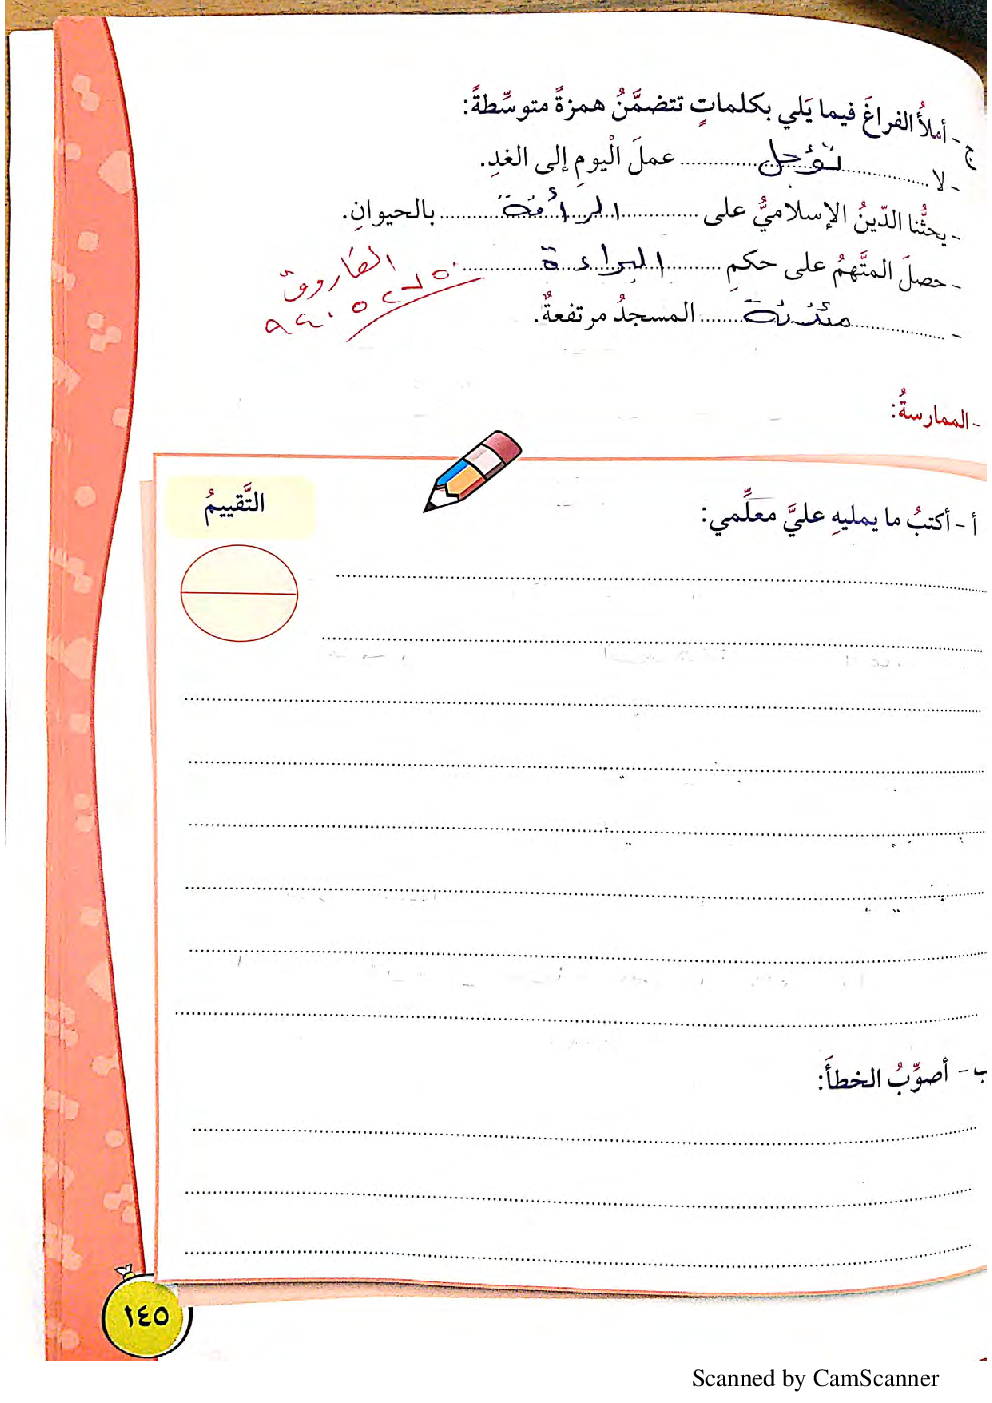 ج - أملأُ الفراغَ فيما يَلي بكلماتٍ تتضمَّنُ همزةً متوسِّطةً:
- لا ........ تؤجل ........ عملَ الْيومِ إلى الغدِ.
- يحثُّنا الدّينُ الإسلاميُّ على ........ الرأفة ........ بالحيوانِ.
- حصلَ المتَّهمُ على حكمِ ........ البراءة ........
الفاروق
- ........ مئذنة ........ المسجدُ مرتفعةٌ.
- الممارسةُ:
التَّقييمُ
أ - أكتبُ ما يمليهِ عليَّ معَلِّمي:
ب - أصوِّبُ الخطأَ:
١٤٥
Scanned by CamScanner